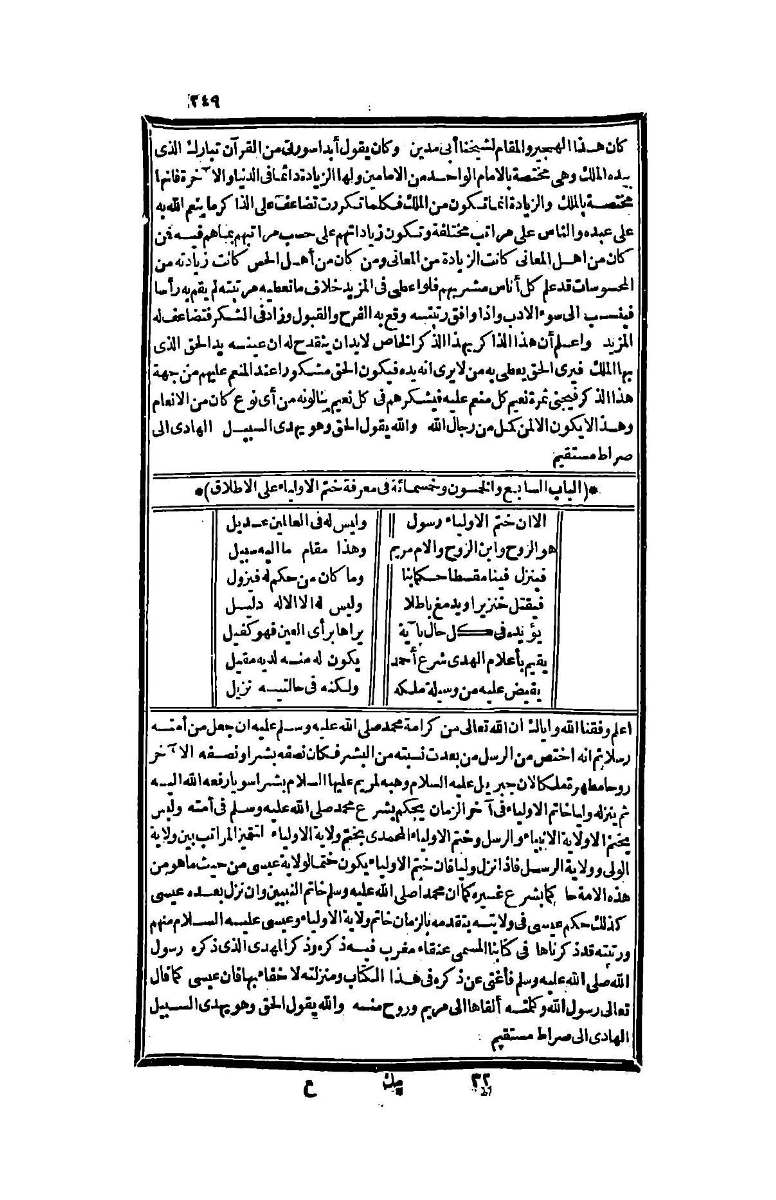 ٢٤٩
كان هذا الهجير والمقام لشيخنا أبي مدين وكان يقول أبدا سورتي من القرآن تبارك الذى
بيده الملك وهي مختصة بالامام الواحد من الامامين ولها الزيادة دائما في الدنيا والآخرة فانها
مختصة بالملك والزيادة انما تكون من الملك فكلما تكررت تضاعف على الذاكر ما ينعم الله به
على عبده والناس على مراتب مختلفة وتكون زياداتهم على حسب مراتبهم بما هم فيه فمن
كان من اهل المعانى كانت الزيادة من المعانى ومن كان من أهل الحس كانت زيادته من
المحسوسات قد علم كل أناس مشربهم فلو أعطى فى المزيد خلاف ما تعطيه مرتبته لم يقم به رأسا
فينسب الى سوء الادب واذا وافق رتبته وقع به الفرح والقبول وزاد فى الشكر فتضاعف له
المزيد واعلم أن هذا الذاكر بهذا الذكر الخاص لابد ان ينقدح له ان عينه يد الحق الذى
بها الملك فيرى الحق يعطى به من لا يرى انه يده فيكون الحق مشكورا عند المنعم عليهم من جهة
هذا الذكر فيجنى ثمرة نعيم كل منعم عليه فيشكرهم فى كل نعيم ينالونه من أى نوع كان من الانعام
وهذا لا يكون الا لمن كمل من رجال الله والله يقول الحق وهو يهدى السبيل الهادى الى
صراط مستقيم
*(الباب السابع والخمسون وخمسمائة فى معرفة ختم الاولياء على الاطلاق)*
الا ان ختم الاولياء رسول وليس له فى العالمين عديل
هو الروح وابن الروح والام مريم وهذا مقام ما اليه سبيل
فينزل فينا مقسطا حكما بنا وما كان من حكم له فيزول
فيقتل خنزيرا ويدمغ باطلا وليس له الا الاله دليل
يؤيده فى كل حال بآية يراها برأى العين فهو كفيل
يقيم بأعلام الهدى شرع أحمد يكون له منه لديه مقيل
يفيض عليه من وسيلة ملكه ولكنه فى حالتيه نزيل
اعلم وفقنا الله واياك ان الله تعالى من كرامة محمد صلى الله عليه وسلم عليه ان جعل من أمته
رسلا ثم انه اختص من الرسل من بعدت نسبته من البشر فكان نصفه بشرا ونصفه الآخر
روحا مطهرة ملكا لان جبريل عليه السلام وهبه لمريم عليها السلام بشرا سويا رفعه الله اليه
ثم ينزله وليا خاتم الاولياء فى آخر الزمان يحكم بشرع محمد صلى الله عليه وسلم فى أمته وليس
يختم الا ولاية الانبياء والرسل وختم الاولياء المحمدى يختم ولاية الاولياء لتتميز المراتب بين ولاية
الولى وولاية الرسل فاذا نزل وليا فان ختم الاولياء يكون ختما لولاية عيسى من حيث ما هو من
هذه الامة حا كما بشرع غيره كما ان محمدا صلى الله عليه وسلم خاتم النبيين وان نزل بعده عيسى
كذلك حكم عيسى فى ولايته بتقدمه بالزمان خاتم ولاية الاولياء وعيسى عليه السلام منهم
ورتبته قد ذكرناها فى كتابنا المسمى عنقاء مغرب فيه ذكره وذكر المهدى الذى ذكره رسول
الله صلى الله عليه وسلم فأغنى عن ذكره فى هذا الكتاب ومنزلته لا خفاء بها فان عيسى كما قال
تعالى رسول الله وكلمته ألقاها الى مريم وروح منه والله يقول الحق وهو يهدى السبيل
الهادى الى صراط مستقيم
٣٢ ع